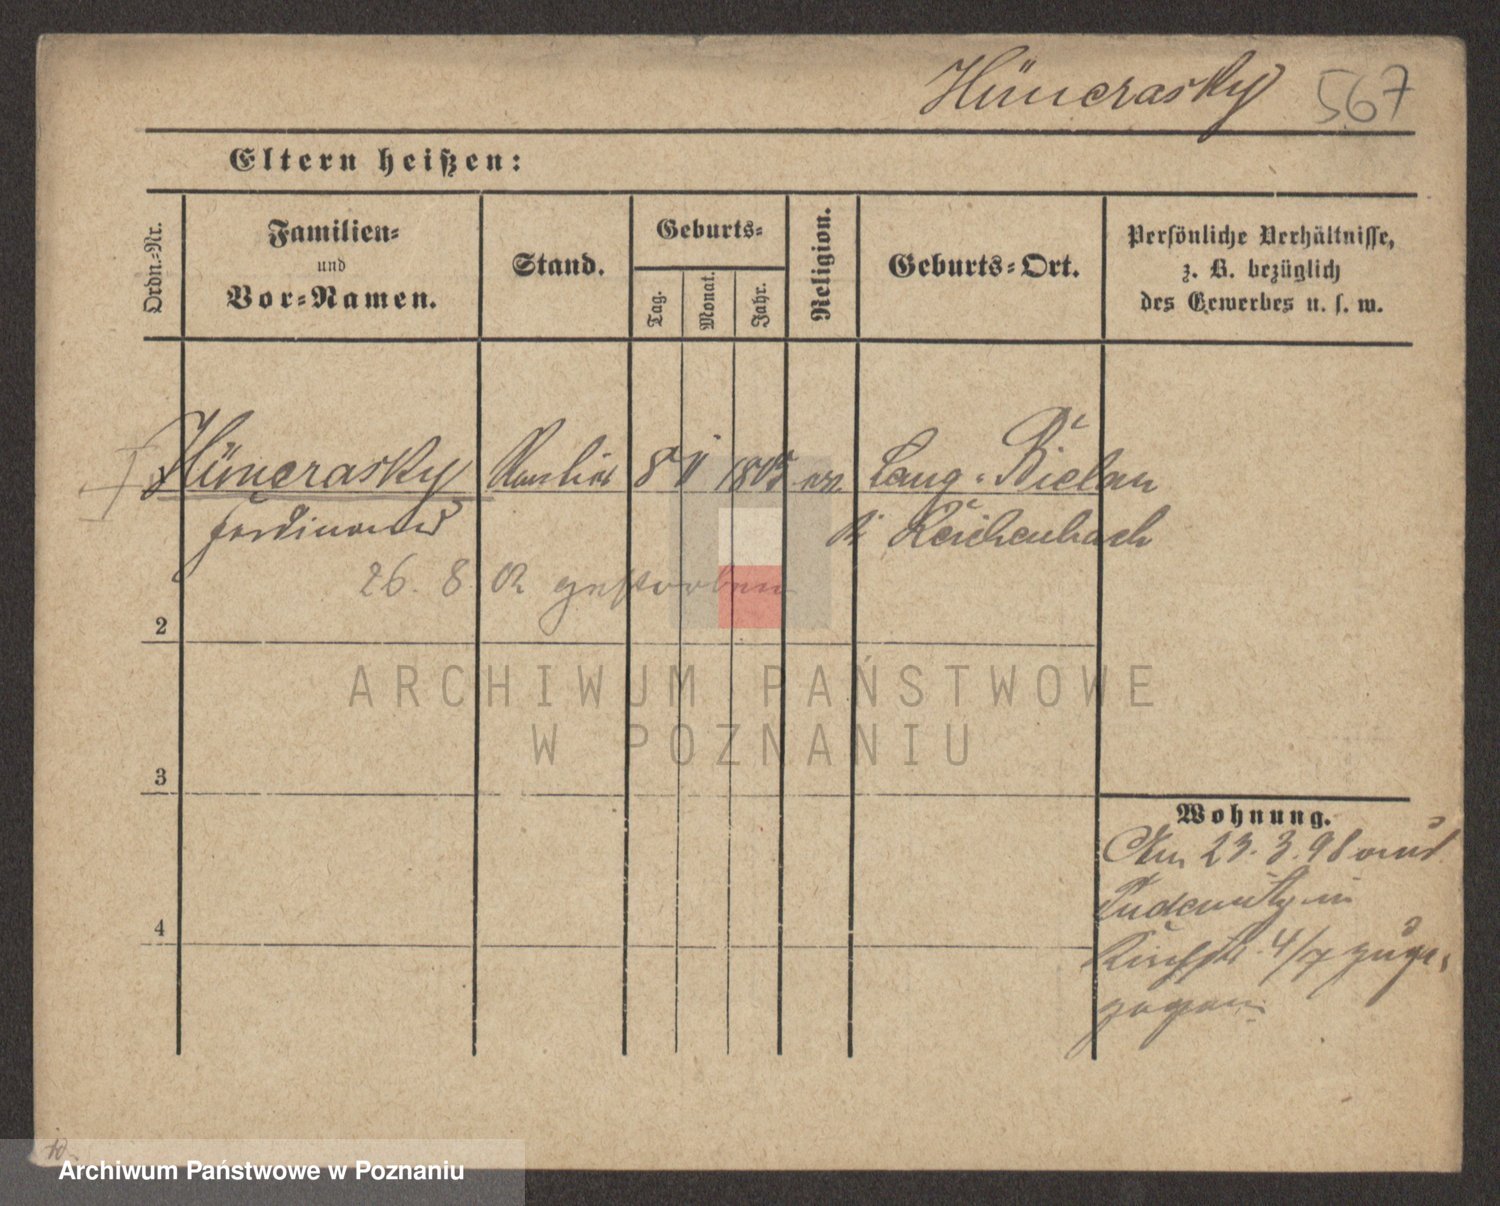 Hünerasky 567
Eltern heißen:
Ordn.-Nr.
Familien-
und
Vor-Namen.
Stand.
Geburts-
Tag.
Monat.
Jahr.
Religion.
Geburts-Ort.
Persönliche Verhältnisse,
z. B. bezüglich
des Gewerbes u. s. w.
Hünerasky 8 Lang-Bielau
Ferdinand Reichenbach
26. 8. 02 gestorben
2
3
4
ARCHIWUM PAŃSTWOWE
W POZNANIU
Wohnung.
Am 23. 3. 98 aus
Pudewitz in
4/7 zuge-
zogen
Archiwum Państwowe w Poznaniu